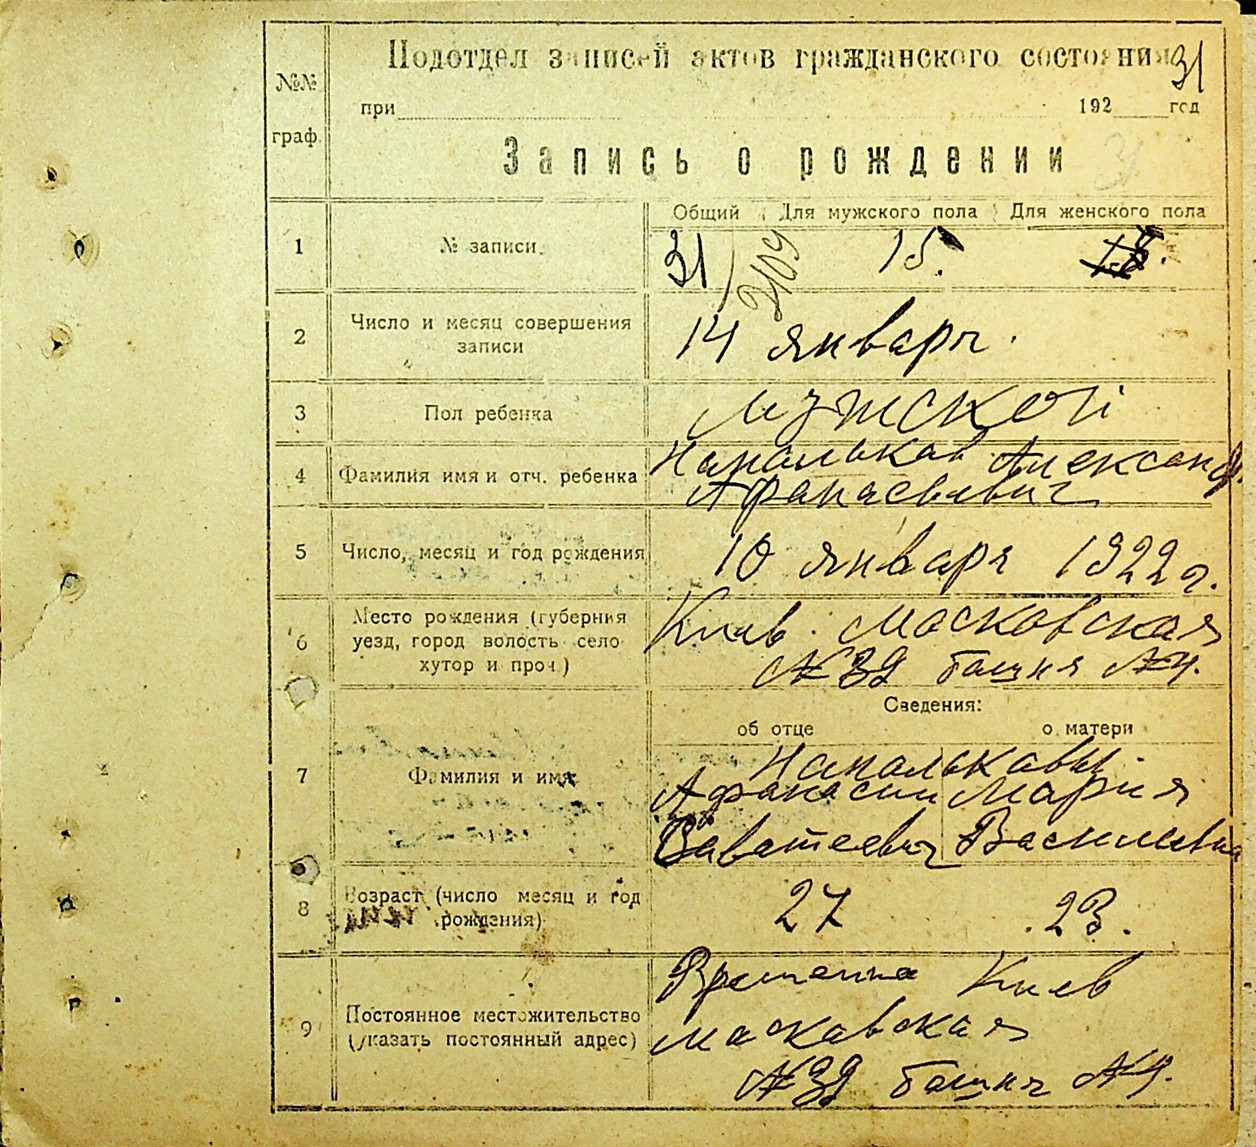 Подотдел записей актов гражданского состояния 31
№№ граф.
при 192 год
Запись о рождении 31
Общий Для мужского пола Для женского пола
1 № записи. 31) 2109 15. 18.
2 Число и месяц совершения
записи
14 январь.
3 Пол ребенка мужской
4 Фамилия имя и отч. ребенка
Напальков Александр
Афанасьевич
5 Число, месяц и год рождения 10 января 1922 г.
6 Место рождения (губерния
уезд, город волость село
хутор и проч)
Киев. Московская
№ 39 башня №4.
Сведения:
об отце о матери
7 Фамилия и имя
Напальковы.
Афанасии Мария
Саватеевич Василевна
8 Возраст (число месяц и год
рождения)
27 23.
9 Постоянное местожительство
(указать постоянный адрес)
Временно Киев
маскавская
№39 башня №4.